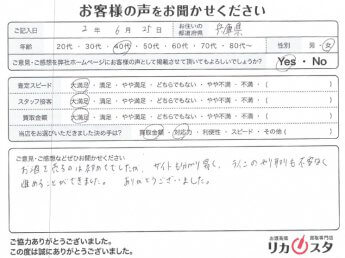 お客様の声をお聞かせください
ご記入日 2年 6月 25日 お住いの都道府県 兵庫県
年齢 20代・30代・40代・50代・60代・70代・80代〜 性別 男・女
ご意見・ご感想を弊社ホームページにお客様の声として掲載させて頂いてもよろしいでしょうか? Yes・No
査定スピード 大満足・満足・やや満足・どちらでもない・やや不満・不満・( )
スタッフ接客 大満足・満足・やや満足・どちらでもない・やや不満・不満・( )
買取金額 大満足・満足・やや満足・どちらでもない・やや不満・不満・( )
当店をお選びいただきました決め手は? 買取金額・対応力・利便性・スピード・その他( )
ご意見・ご感想などぜひお聞かせください。
お酒を売るのは初めてでしたが、サイトも分かり易く、ラインのやり取りも不安なく
進めることができました。ありがとうございました。
ご協力ありがとうございました。
この度は誠にありがとうございました。
お酒高価買取専門店
リカスタ